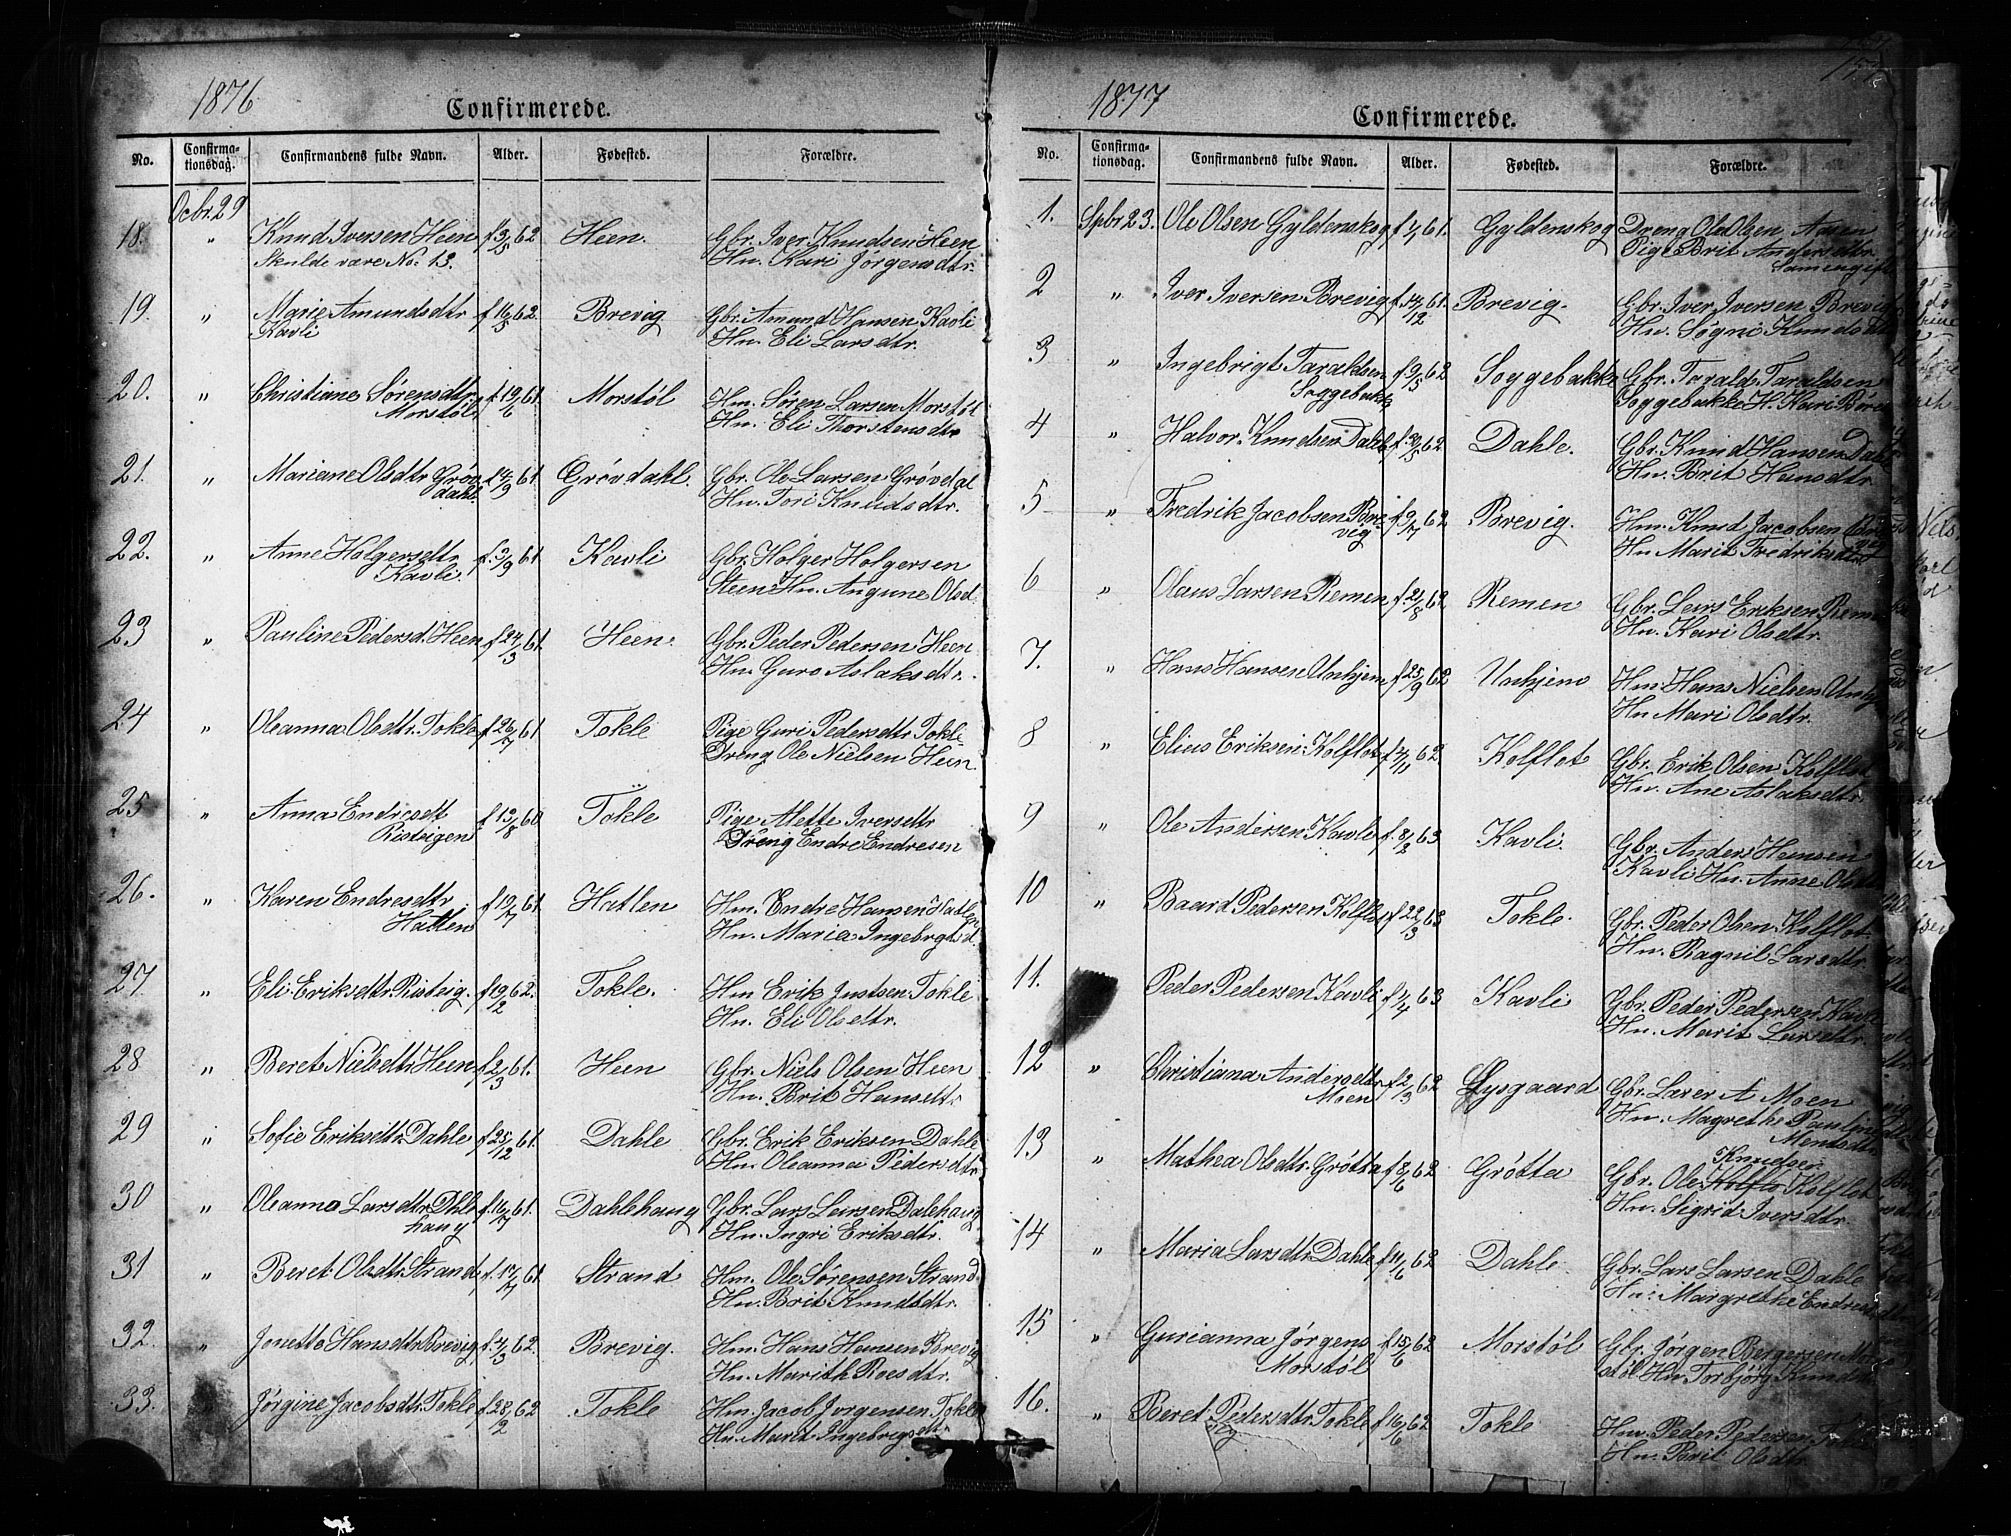 1876
Confirmerede.
No. Confirmationsdag. Confirmandens fulde Navn. Alder. Fødested. Forældre.
Ocbr. 29
18. " Knud Iversen Heen f 3/5 62 Heen. Gbr. Iver Knudsen Heen
Skulde være No: 13. Hu. Kari Jørgensdtr.
19. " Marie Amundsdtr f 16/5 62. Brevig Gbr. Amund Hansen Kavli
Kavli Hu. Eli Larsdtr.
20. " Christiane Sørensdtr f 19/6 61 Morstøl Hm. Søren Larsen Morstøl
Morstøl Hu. Eli Thorstensdtr
21. " Mariane Olsdtr Grøv f 14/9 61. Grøvdahl. Gbr. Ole Larsen Grøvdal
dahl. Hu. Tori Knudsdtr.
22. " Anne Holgersdtr f. 3/9 61 Kavli Gbr. Holger Holgersen
Kavli. Steen Hu. Angune Olsd
23 " Pauline Pedersd. Heen f 24/3 61. Heen. Gbr. Peder Pedersen Heen
Hu. Guro Aslaksdtr.
24 " Oleanna Olsdtr. Tokle f 26/7 61 Tokle Pige Guri Pedersdtr Tokle
Dreng Ole Nielsen Heen.
25 " Anna Endresdt f 13/8 60 Tokle Pige Alette Iversdtr
Risteigen Dreng Endre Endresen
26. " Karen Endresdtr f 19/7 61. Hatlen Hm. Endre Hansen Hatlen
Hatlen Hu. Maria Ingebrgtsd.
27 " Eli Eriksdtr. Risteig. f 19/2 62. Tokle. Hm Erik Justsen Tokle
Hu. Eli Olsdtr.
28 " Beret Nielsdtr. Heen f 2/3 61. Heen Gbr. Niels Olsen Heen
Hu. Brit Hansdtr.
29 " Sofie Eriksdtr. Dahle f 25/12 61. Dahle Gbr. Erik Eriksen Dahle
Hu. Oleanna Pedersdtr.
30 " Oleanna Larsdtr. Dhle f 16/7 61. Dahlehaug Gbr. Lars Larsen Dalehaug
haug Hu. Ingri Eriksdtr.
31 " Beret Olsdtr. Strand f. 14/7 61 Strand Hm. Ole Sørensen Strand
Hu. Brit Knudsdtr.
32. " Jonette Hansdtr. Brevig f. 4/3 62. Brevig. Hm. Hans Hansen Brevig
Hu. Marith Roesdtr.
33. " Jørgine Jacobsdtr. Tokle f 28/2 62 Tokle Hm. Jacob Jørgensen Tokle
Hu. Marit Ingebrigsdtr.
1877
Confirmerede.
No. Confirmationsdag. Confirmandens fulde Navn. Alder. Fødested. Forældre.
1. Spbr 23. Ole Olsen Gyldenskog f 1/1 61. Gyldenskog Dreng Ole Olsen
Pige Brit Andersdtr.
2 " Iver Iversen Brevig f 14/12 61. Brevig. Gbr. Iver Iversen Brevig
Hu. Søgni Knudsd
3 " Ingebrigt Taraldsen f 9/5 62 Soggebakke Gbr. Tarald Taraldsen
Soggebakk Soggebakke H. Kari
4 " Halvor Knudsen Dahle f 30/5 62 Dahle. Gbr. Knud Hansen Dahle
Hu. Brit Hansdtr.
5 " Fredrik Jacobsen Bre f 9/7 62 Brevig. Hm. Knud Jacobsen
vig Hu Marit Fredriksdtr
6 " Olaus Larsen Remen f 21/8 62 Remen Gbr. Lars Eriksen Remen
Hu. Kari Olsdtr.
7. " Hans Hansen Unhjem f 25/9 62 Unhjem Hm. Hans Nielsen Unhj
Hu Mari Olsdtr.
8 " Elius Eriksen Kolflot f 4/11 62 Kolflot Gbr. Erik Olsen Kolflot
Hu. Ane Aslaksdtr.
9 " Ole Andersen Kavli f. 8/2 63 Kavli. Gbr. Anders Hansen
Kavli Hu. Anne Olsdtr
10 " Baard Pedersen Kolflot f 22/3 63 Tokle. Gbr. Peder Olsen Kolflot
Hu. Ragnil Larsdtr.
11. " Peder Pedersen Kavli f 1/4 63 Kavli Gbr. Peder Pedersen Kavli
Hu. Marit Larsdtr.
12 " Christiana Andersdtr f 2/3 62 Lysgaard Gbr. A Moen
Moen Hu. Magrethe Pauline
13 " Mathea Olsdtr. Grøtta f 8/6 62 Grøtta Knudsen
Gbr. Ole Kolflo Kolflot
Hu. Sigrid Iversdtr.
14 " Maria Larsdtr. Dahle f 11/6 62 Dahle Gbr. Lars Larsen Dahle
Hu. Margrethe Endresdtr
15 " Gurianna Jørgens f 15/6 62 Morstøl Gbr. Jørgen Bergersen Mor
Morstøl støl Hu Torbjørg Knudsd
16. " Beret Pedersdtr. Tokle f 16/6 62 Tokle Hm. Peder Pedersen Tokle
Hu. Brit Olsdtr.